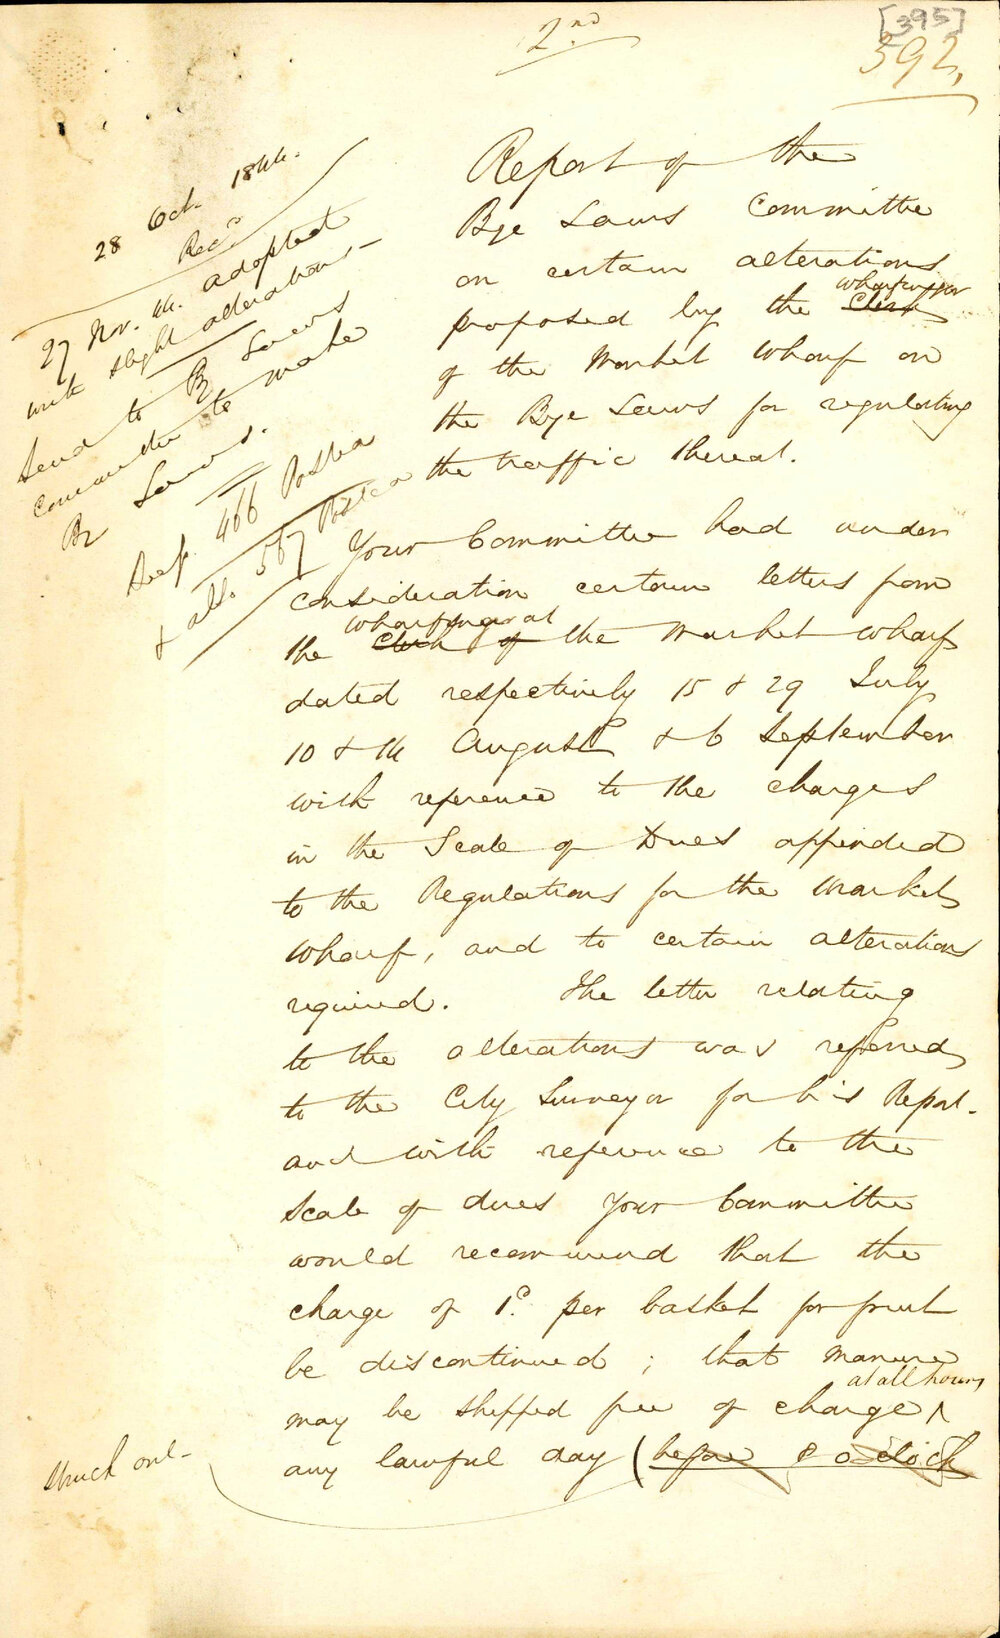 2nd
[395]
392,
28 Oct. 1844.
Recd
27 Nov. 44. adopted
with slight alterations -
Send to By Laws
Committee to make
By Laws.
See p. 466 Postea
& all. 567 Postea
Report of the
Bye Laws Committee
on certain alterations
wharfinger
proposed by the Clerk
of the Market Wharf on
the Bye Laws for regulating
the traffic thereat.
Your Committee had under
consideration certain letters from
wharfinger at
the Clerk of the Market wharf
dated respectively 15 & 29 July
10 & 14 August & 6 September
with reference to the charges
in the Scale of Dues appended
to the Regulations for the Market
Wharf, and to certain alterations
required. The letter relating
to the alterations was referred
to the City Surveyor for his Report.
and with reference to the
Scale of dues Your Committee
would recommend that the
charge of 1d. per basket for fruit
be discontinued; that manure
at all hours
may be shipped free of charge ^
any lawful day (before 8 o'clock
Struck out -